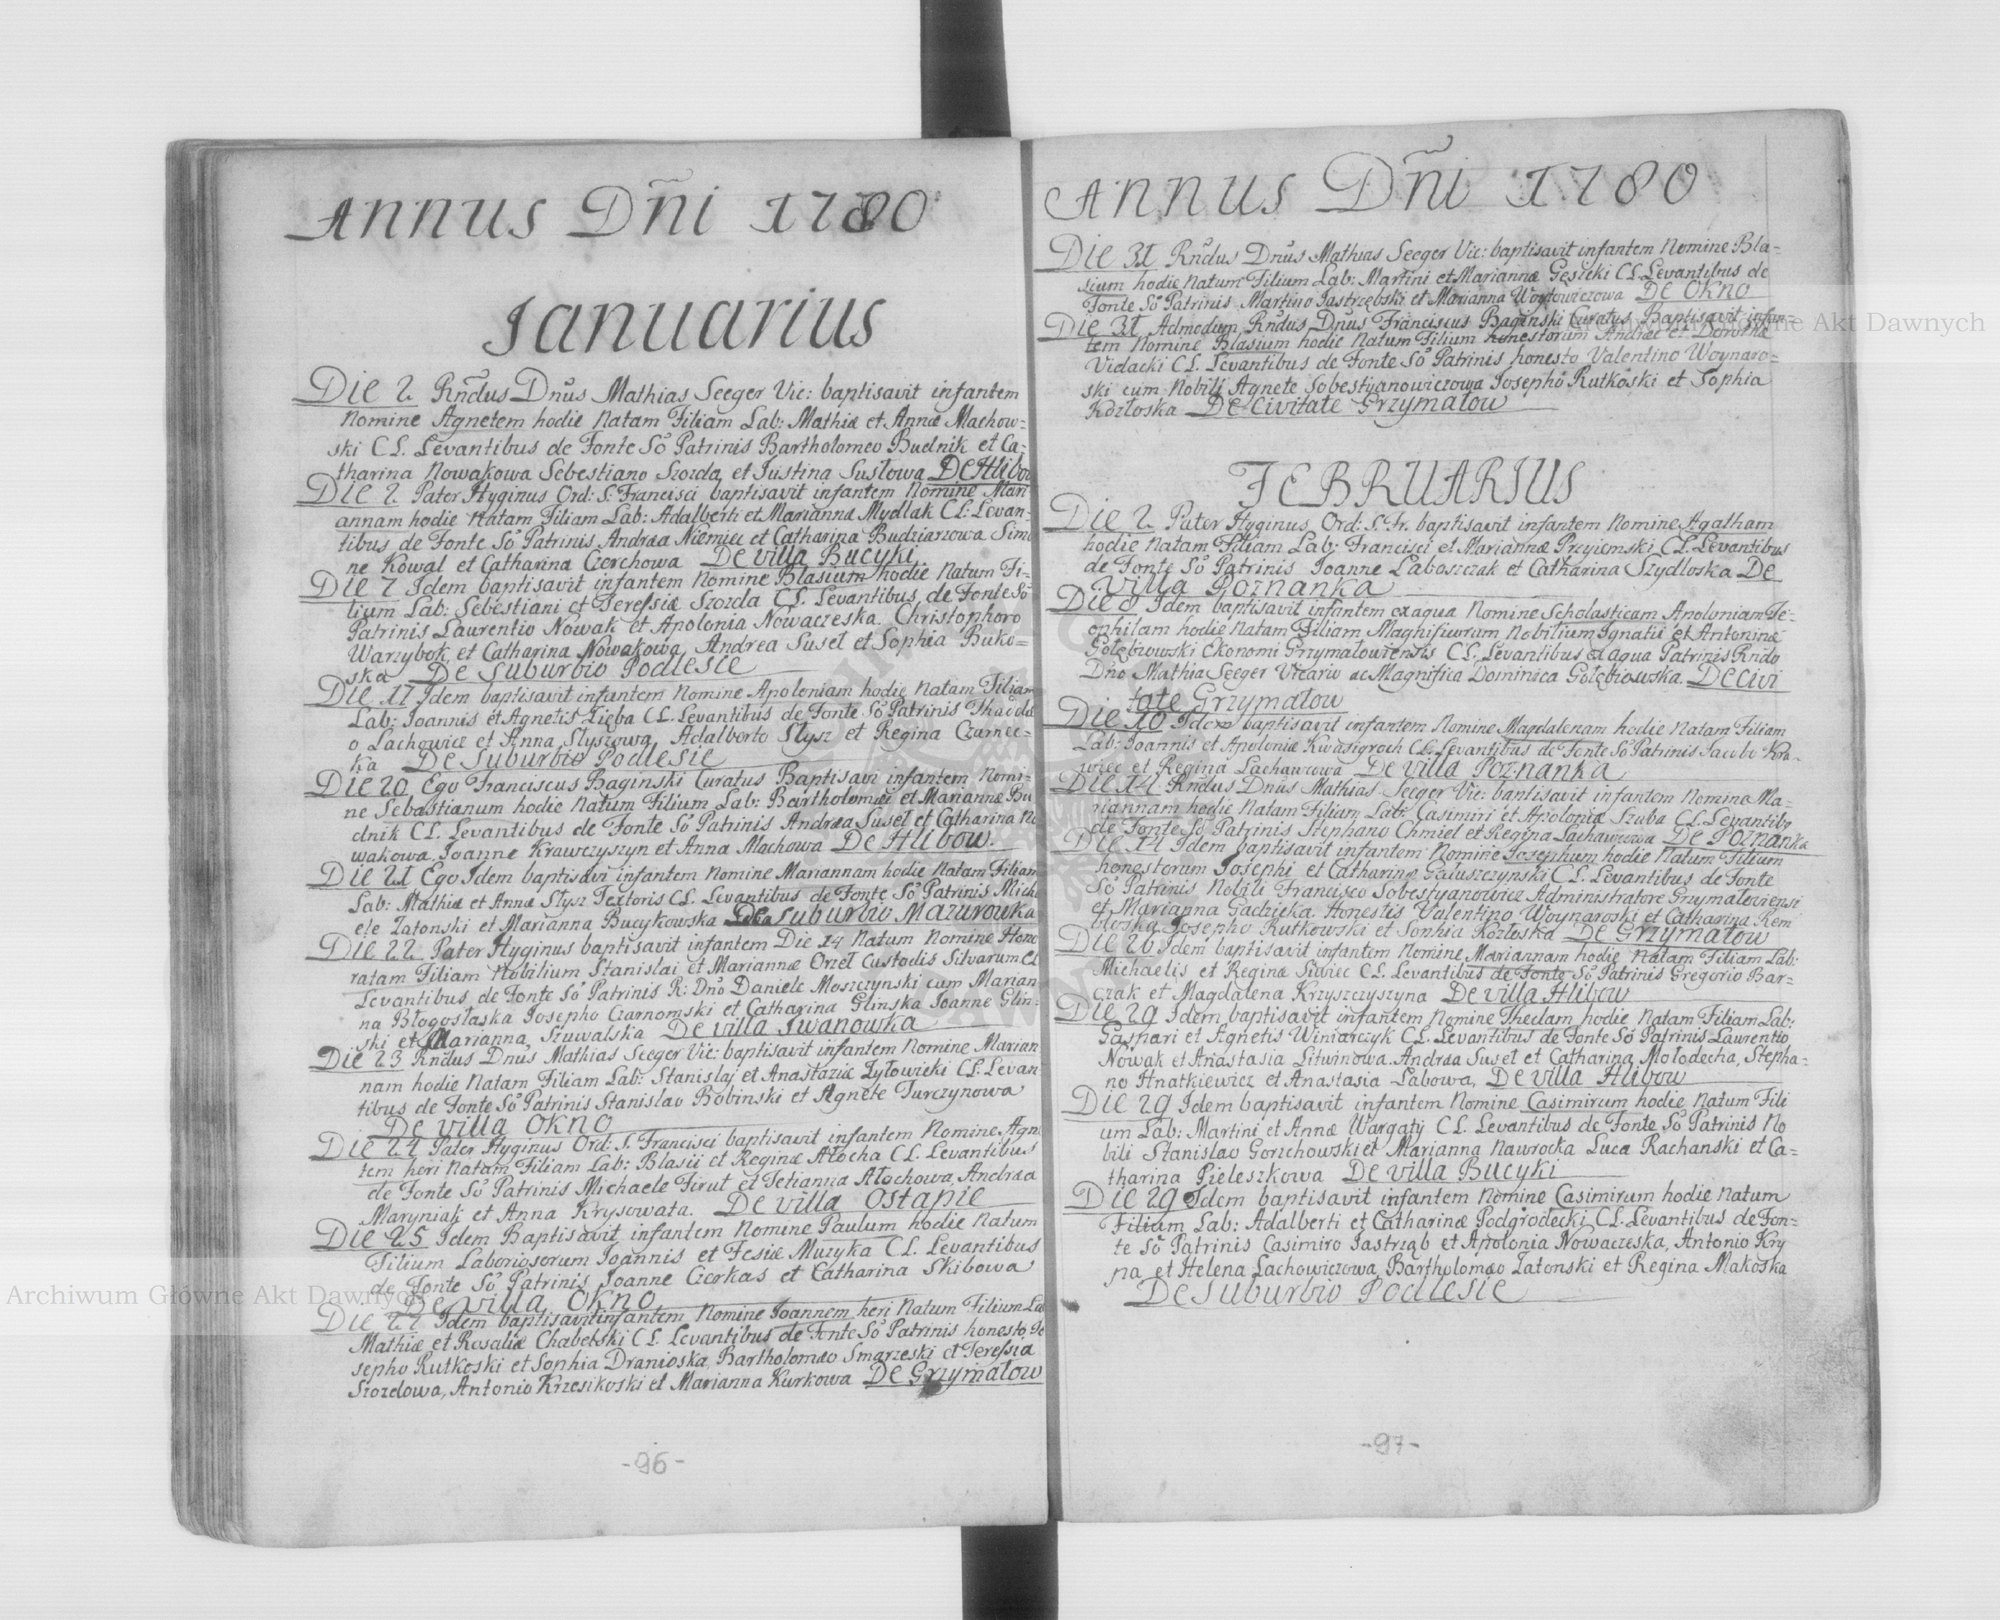 Annus Dñi 1780
Ianuarius
Die 2 Rñdus Dñus Mathias Seeger Vic: baptisavit infantem
Nomine Agnetem hodie Natam Filiam Lab: Mathiæ et Annæ Machow=
ski C L. Levantibus de Fonte So Patrinis Bartholomeo Budnik et Ca=
tharina Nowakowa Sebestiano Szozda et Iustina Susłowa De Hlibow
Die 2 Pater Hyginus Ord: S. Francisci baptisavit infantem Nomine Mari
annam hodie Natam Filiam Lab: Adalberti et Marianna Mydlak C L. Levan=
tibus de Fonte So Patrinis Andræa Niemiec et Catharina Budziarzowa Simo
ne Kowal et Catharina Czerchowa De villa Bucyki
Die 7 Idem baptisavit infantem Nomine Blasium hodie Natum Fi=
lium Lab: Sebestiani et Teressiæ Szozda C L. Levantibus de Fonte So
Patrinis Laurentio Nowak et Apolonia Nowaczeska. Christophoro
Warzybok, et Catharina Nowakowa, Andrea Suseł et Sophia Buko=
ska De Suburbio Podlesie
Die 17 Idem baptisavit infantem Nomine Apoloniam hodie Natam Filiam
Lab: Ioannis et Agnetis Zięba C L. Levantibus de Fonte So Patrinis Thadde
o Lachowicz et Anna Słyszowa, Adalberto Słysz et Regina Czarnec=
ka De Suburbio Podlesie
Die 20 Ego Franciscus Baginski Curatus Baptisavi infantem Nomi=
ne Sebastianum hodie Natum Filium Lab: Bartholomæi et Mariannæ Bu
dnik C L. Levantibus de Fonte So Patrinis Andræa Suseł et Catharina No
wakowa. Ioanne Krawczyszyn et Anna Machowa De Hlibow.
Die 21 Ego Idem baptisavi infantem Nomine Mariannam hodie Natam Filiam
Lab: Mathiæ et Annæ Słysz Textoris C L. Levantibus de Fonte So Patrinis Micha
ele Zatonski et Marianna Bucykowska De Suburbio Mazurowka
Die 22 Pater Hyginus baptisavit infantem Die 14 Natum Nomine Hono
ratam Filiam Nobilium Stanislai et Mariannæ Orzeł Custodis Silvarum CL
Levantibus de Fonte So Patrinis R: Dño Daniele Moszczynski cum Marian
na Błogosłaska Iosepho Czarnomski et Catharina Glinska Ioanne Glin=
ski et Marianna Szuwalska De villa Iwanowka
Die 23 Rñdus Dñus Mathias Seeger Vic: baptisavit infantem Nomine Marian
nam hodie Natam Filiam Lab: Stanislaj et Anastaziæ Zyłowicki C L. Levan
tibus de Fonte So Patrinis Stanislao Bobinski et Agnete Turczynowa
De villa Okno
Die 24 Pater Hyginus Ord: S. Francisci baptisavit infantem Nomine Agne
tem heri Natam Filiam Lab: Blasii et Reginæ Atocha C L. Levantibus
de Fonte So Patrinis Michaele Firut et Tetianna Atochowa, Andræa
Maryniak et Anna Krysowata. De villa Ostapie
Die 25 Idem Baptisavit infantem Nomine Paulum hodie Natum
Filium Laboriosorum Ioannis et Fesiæ Muzyka C L. Levantibus
de Fonte So Patrinis Ioanne Czerkas et Catharina Skibowa
De villa Okno
Die 27 Idem baptisavit infantem Nomine Ioannem heri Natum Filium Lab
Mathiæ et Rosaliæ Chabelski C L. Levantibus de Fonte So Patrinis honesto Io
sepho Rutkoski et Sophia Dranioska, Bartholomæo Smarzeski et Teressia
Szozdowa, Antonio Krzesikoski et Marianna Kurkowa De Grzymałow
-96-
Annus Dñi 1780
Die 31 Rñdus Dñus Mathias Seeger Vic: baptisavit infantem Nomine Bla=
sium hodie Natum Filium Lab: Martini et Mariannæ Gęsicki C L. Levantibus de
Fonte So Patrinis Martino Iastrzębski et Marianna Woytowiczowa De Okno
Die 31 Admodum Rñdus Dñus Franciscus Baginski Curatus Baptisavit infan=
tem Nomine Blasium hodie Natum Filium honestorum Andræ et Dorotha
Vidacki C L. Levantibus de Fonte So Patrinis honesto Valentino Woynaro=
ski cum Nobili Agnete Sobestyanowiczowa Iosepho Rutkoski et Sophia
Kozłoska De Civitate Grzymałow
FEBRUARIUS
Die 2 Pater Hyginus Ord: S. Fr. baptisavit infantem Nomine Agatham
hodie Natam Filiam Lab: Francisci et Mariannæ Przyiemski C L. Levantibus
de Fonte So Patrinis Ioanne Laboszczak et Catharina Szydloska De
villa Poznanka
Die 8 Idem baptisavit infantem ex aqua Nomine Scholasticam Apoloniam Te=
ophilam hodie Natam Filiam Magnificorum Nobilium Ignatii et Antoninæ
Gołębiowski Ekonomi Grzymałoviensis C L. Levantibus ex aqua Patrinis Rñdo
Dño Mathia Seeger Vicario ac Magnifica Dominica Gołębiowska. De Civi
tate Grzymałow
Die 10 Idem baptisavit infantem Nomine Magdalenam hodie Natam Filiam
Lab: Ioannis et Apoloniæ Kwasigroch C L. Levantibus de Fonte So Patrinis Iacobo Kra=
wiec et Regina Lachawcowa De villa Poznanka
Die 14 Rñdus Dñus Mathias Seeger Vic: baptisavit infantem Nomine Ma=
riannam hodie Natam Filiam Lab: Casimiri et Apoloniæ Szuba C L. Levantibs
de Fonte So Patrinis Stephano Chmiel et Regina Lachawcowa De Poznanka
Die 14 Idem baptisavit infantem Nomine Iosephum hodie Natum Filium
honestorum Iosephi et Catharinæ Gałuszczynski C L. Levantibus de Fonte
So Patrinis Nobili Francisco Sobestyanowicz Administratore Grzymaloviensi
et Marianna Gadzicka. Honestis Valentino Woynaroski et Catharina Rem
bloska Iosepho Rutkowski et Sophia Kozłoska De Grzymałow
Die 26 Idem baptisavit infantem Nomine Mariannam hodie Natam Filiam Lab:
Michaelis et Reginæ Siwiec C L. Levantibus de Fonte So Patrinis Gregorio Bar=
czak et Magdalena Krzyszczyszyna De villa Hlibow
Die 29 Idem baptisavit infantem Nomine Theclam hodie Natam Filiam Lab:
Gaspari et Agnetis Winiarczyk C L. Levantibus de Fonte So Patrinis Laurentio
Nowak et Anastasia Litwinowa. Andræa Suseł et Catharina Mołodecha, Stepha=
no Hnatkiewicz et Anastasia Labowa, De villa Hlibow
Die 29 Idem baptisavit infantem Nomine Casimirum hodie Natum Fili
um Lab: Martini et Annæ Wargaty C L. Levantibus de Fonte So Patrinis No
bili Stanislao Gorzchowski et Marianna Nawrocka Luca Rachanski et Ca=
tharina Pieleszkowa De villa Bucyki
Die 29 Idem baptisavit infantem Nomine Casimirum hodie Natum
Filium Lab: Adalberti et Catharinæ Podgrodecki C L. Levantibus de Fon=
te So Patrinis Casimiro Iastrząb et Apolonia Nowaczeska, Antonio Kry
pa et Helena Lachowiczowa, Bartholomæo Zatonski et Regina Makoska
De Suburbio Podlesie
-97-
Archiwum Główne Akt Dawnych
Archiwum Główne Akt Dawnych